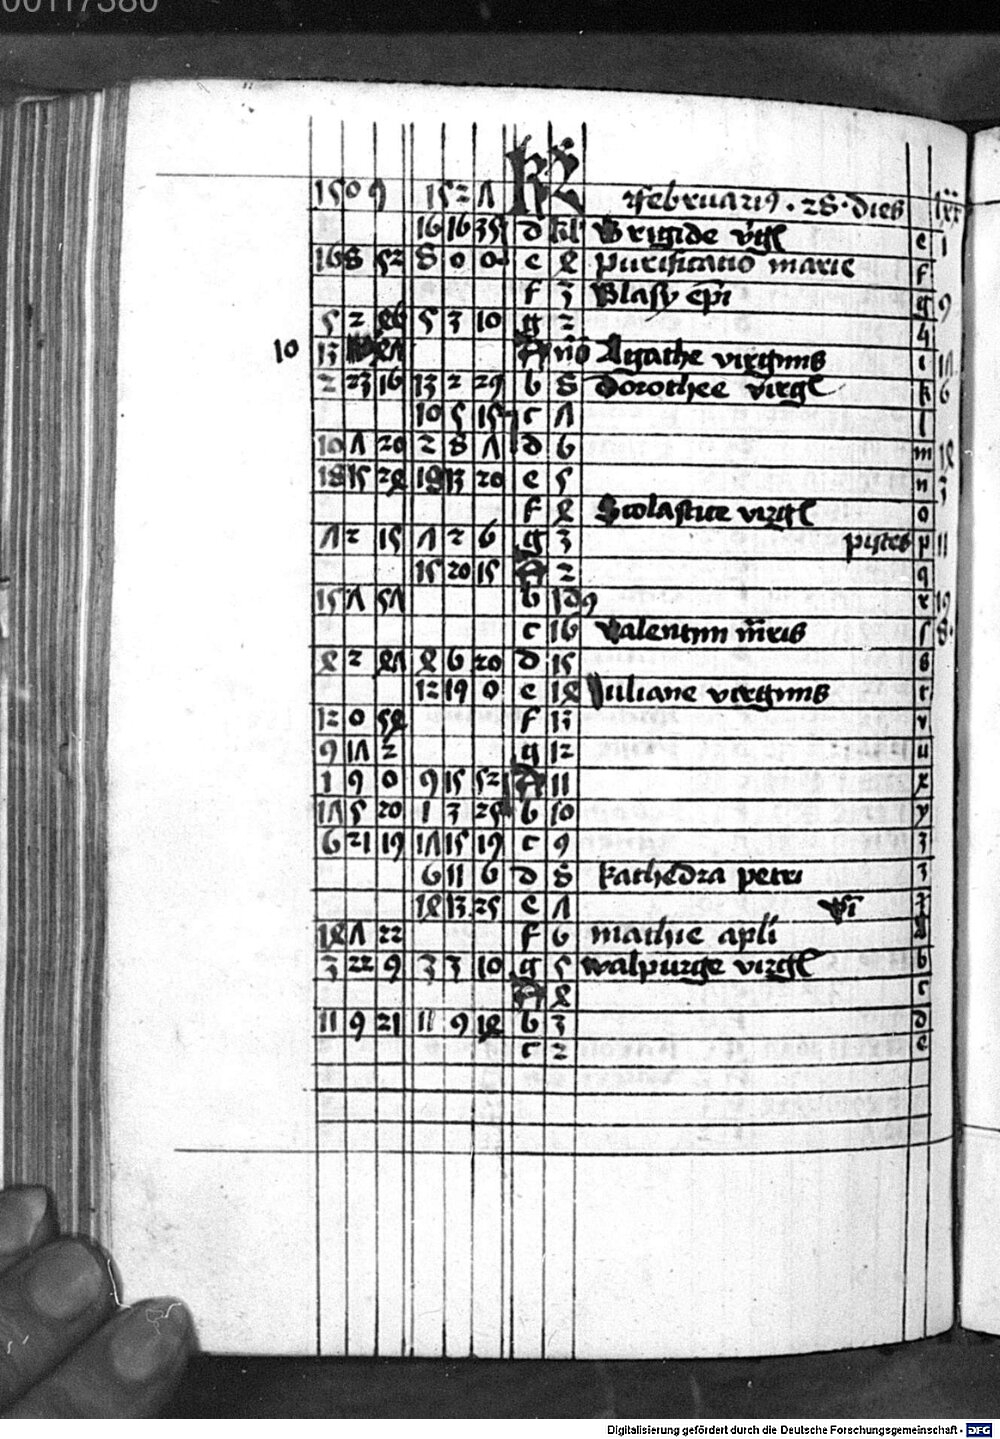 00117380
1509 1521 KL februari9 . 28 . dies
16 16 35 d kl Brigide v̄gī e 1
16 8 52 8 0 0 e 4 purificatio marie f
f 3 Blasy ep̄i g 9
5 2 46 5 3 10 g 2 h
10 13 47 A nō Agathe virginis i 17
2 23 16 13 2 29 b 8 dorothee virgī k 6
10 5 15 c 7 l
10 7 20 2 8 7 d 6 m 14
18 15 24 18 13 20 e 5 n 3
f 4 Scolastice virgī o
7 2 15 7 2 6 g 3 pisces p 11
15 20 15 A 2 q
15 7 57 b id9 r 19
c 16 valentini m̄ris s 8
4 2 47 4 6 20 d 15 s
12 19 0 e 14 Juliane virginis t
12 0 54 f 13 v
9 17 2 g 12 u
1 9 0 9 15 52 A 11 x
17 5 20 1 3 25 b 10 y
6 21 19 17 15 19 c 9 z
6 11 6 d 8 kathedra petri
14 13 25 e 7 vi
14 7 22 f 6 mathie apl̄i A
3 22 9 3 3 10 g 5 walpurge virgī b
A 4 c
11 9 21 11 9 14 b 3 d
c 2 e
Digitalisierung gefördert durch die Deutsche Forschungsgemeinschaft - DFG